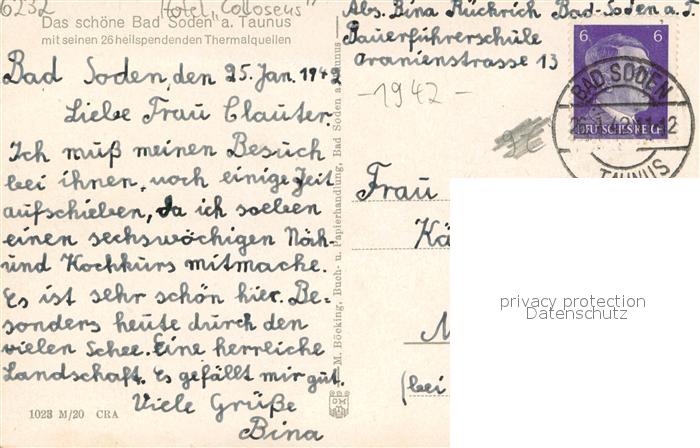 6232
Hotel „Colloseus"
Das schöne Bad Soden a. Taunus
mit seinen 26 heilspendenden Thermalquellen
Bad Soden, den 25. Jan. 1942
Liebe Frau Clauter.
Ich muß meinen Besuch
bei ihnen, noch einige Zeit
aufschieben, da ich soeben
einen sechswöchigen Näh-
und Kochkurs mitmache.
Es ist sehr schön hier. Be-
sonders heute durch den
vielen Schee. Eine herreliche
Landschaft. Es gefällt mir gut.
Viele Grüße
Bina
1023 M/20 CRA
M. Böcking, Buch- u. Papierhandlung, Bad Soden a. Taunus
Abs. Bina Rückrich Bad-Soden a. T.
Bauerführerschule
Oranienstrasse 13
-1942-
6 6
DEUTSCHES REICH
BAD SODEN
TAUNUS
Frau
Kä
(bei
privacy protection
Datenschutz